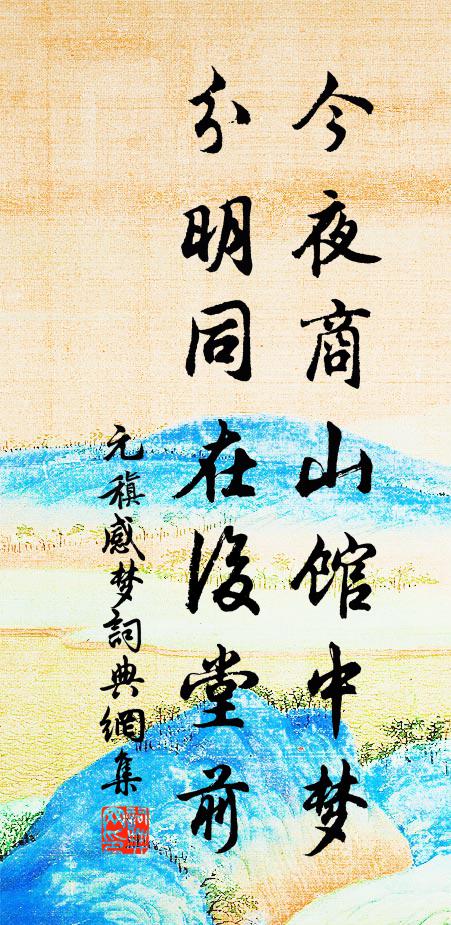 今夜商山馆中梦
分明同在後堂前
元稹感梦詞典網集